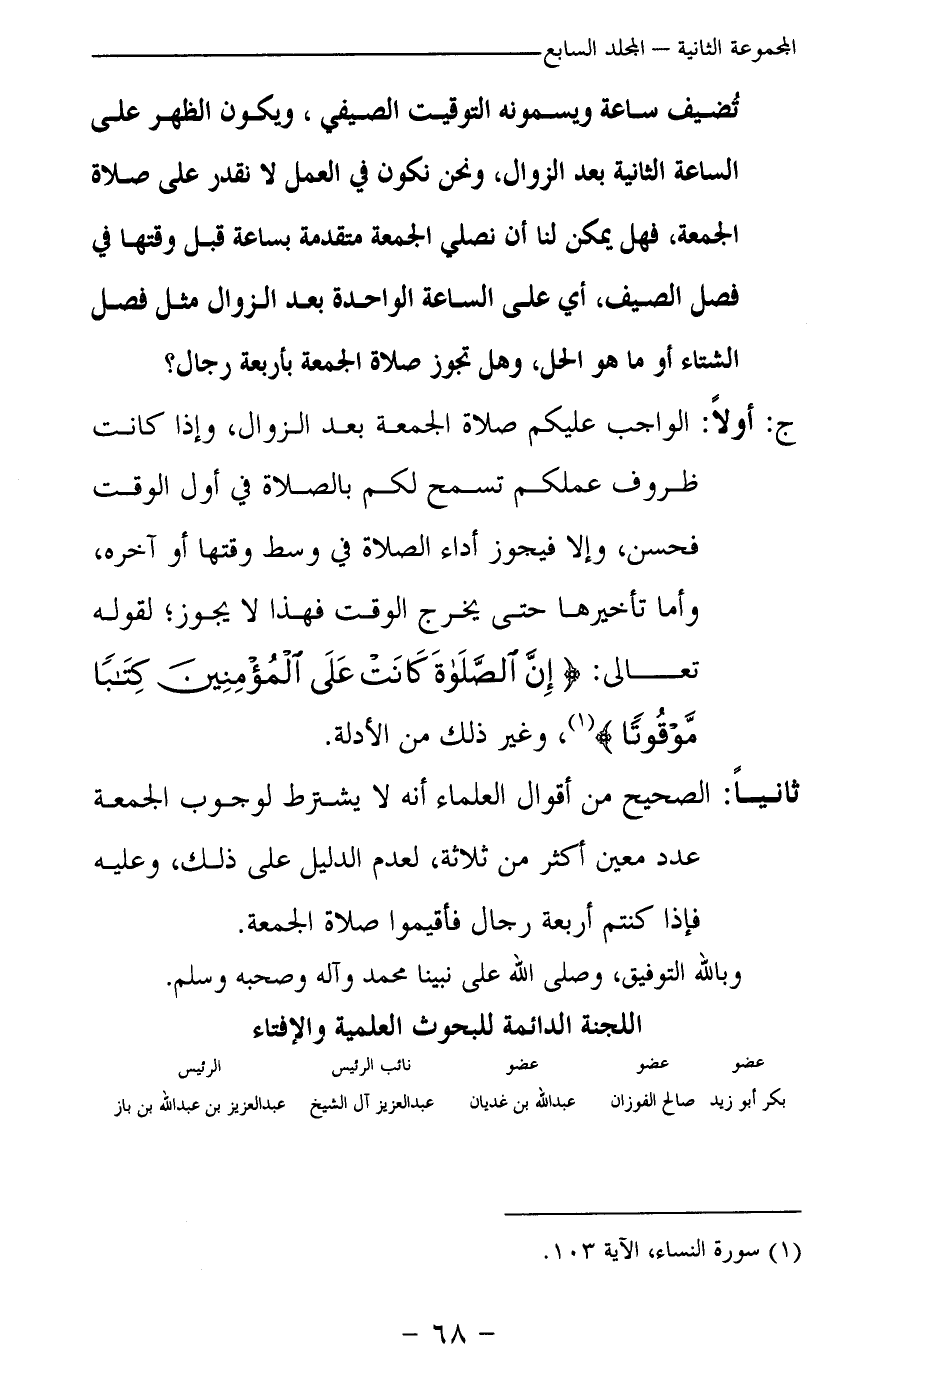 المجموعة الثانية – المجلد السابع
تُضيف ساعة ويسمونه التوقيت الصيفي ، ويكون الظهر على
الساعة الثانية بعد الزوال، ونحن نكون في العمل لا نقدر على صلاة
الجمعة، فهل يمكن لنا أن نصلي الجمعة متقدمة بساعة قبل وقتها في
فصل الصيف، أي على الساعة الواحدة بعد الزوال مثل فصل
الشتاء أو ما هو الحل، وهل تجوز صلاة الجمعة بأربعة رجال؟
ج: أولاً: الواجب عليكم صلاة الجمعة بعد الزوال، وإذا كانت
ظروف عملكم تسمح لكم بالصلاة في أول الوقت
فحسن، وإلا فيجوز أداء الصلاة في وسط وقتها أو آخره،
وأما تأخيرها حتى يخرج الوقت فهذا لا يجوز؛ لقوله
تعالى: ﴿ إِنَّ ٱلصَّلَوٰةَ كَانَتۡ عَلَى ٱلۡمُؤۡمِنِينَ كِتَٰبٗا
مَّوۡقُوتٗا ﴾(١)، وغير ذلك من الأدلة.
ثانياً: الصحيح من أقوال العلماء أنه لا يشترط لوجوب الجمعة
عدد معين أكثر من ثلاثة، لعدم الدليل على ذلك، وعليه
فإذا كنتم أربعة رجال فأقيموا صلاة الجمعة.
وبالله التوفيق، وصلى الله على نبينا محمد وآله وصحبه وسلم.
اللجنة الدائمة للبحوث العلمية والإفتاء
عضو عضو عضو نائب الرئيس الرئيس
بكر أبو زيد صالح الفوزان عبدالله بن غديان عبدالعزيز آل الشيخ عبدالعزيز بن عبدالله بن باز
(١) سورة النساء، الآية ١٠٣.
– ٦٨ –